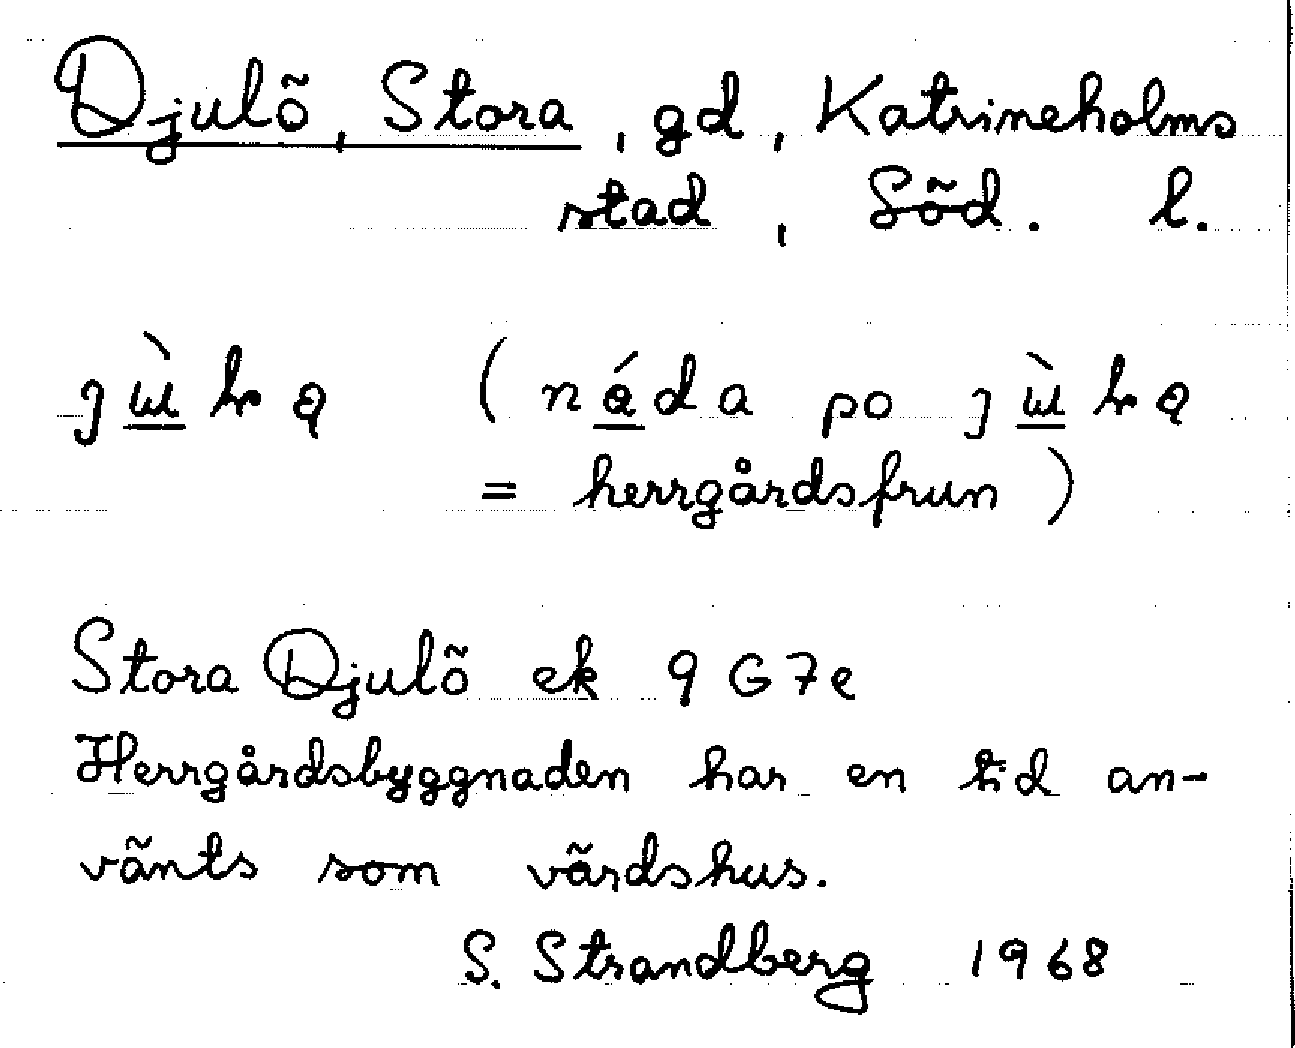 Djulö, Stora, gd, Katrineholms
stad, Söd. l.
(
= herrgårdsfrun)
Stora Djulö ek 9G7e
Herrgårdsbyggnaden har en tid an-
vänts som värdshus.
S. Strandberg 1968